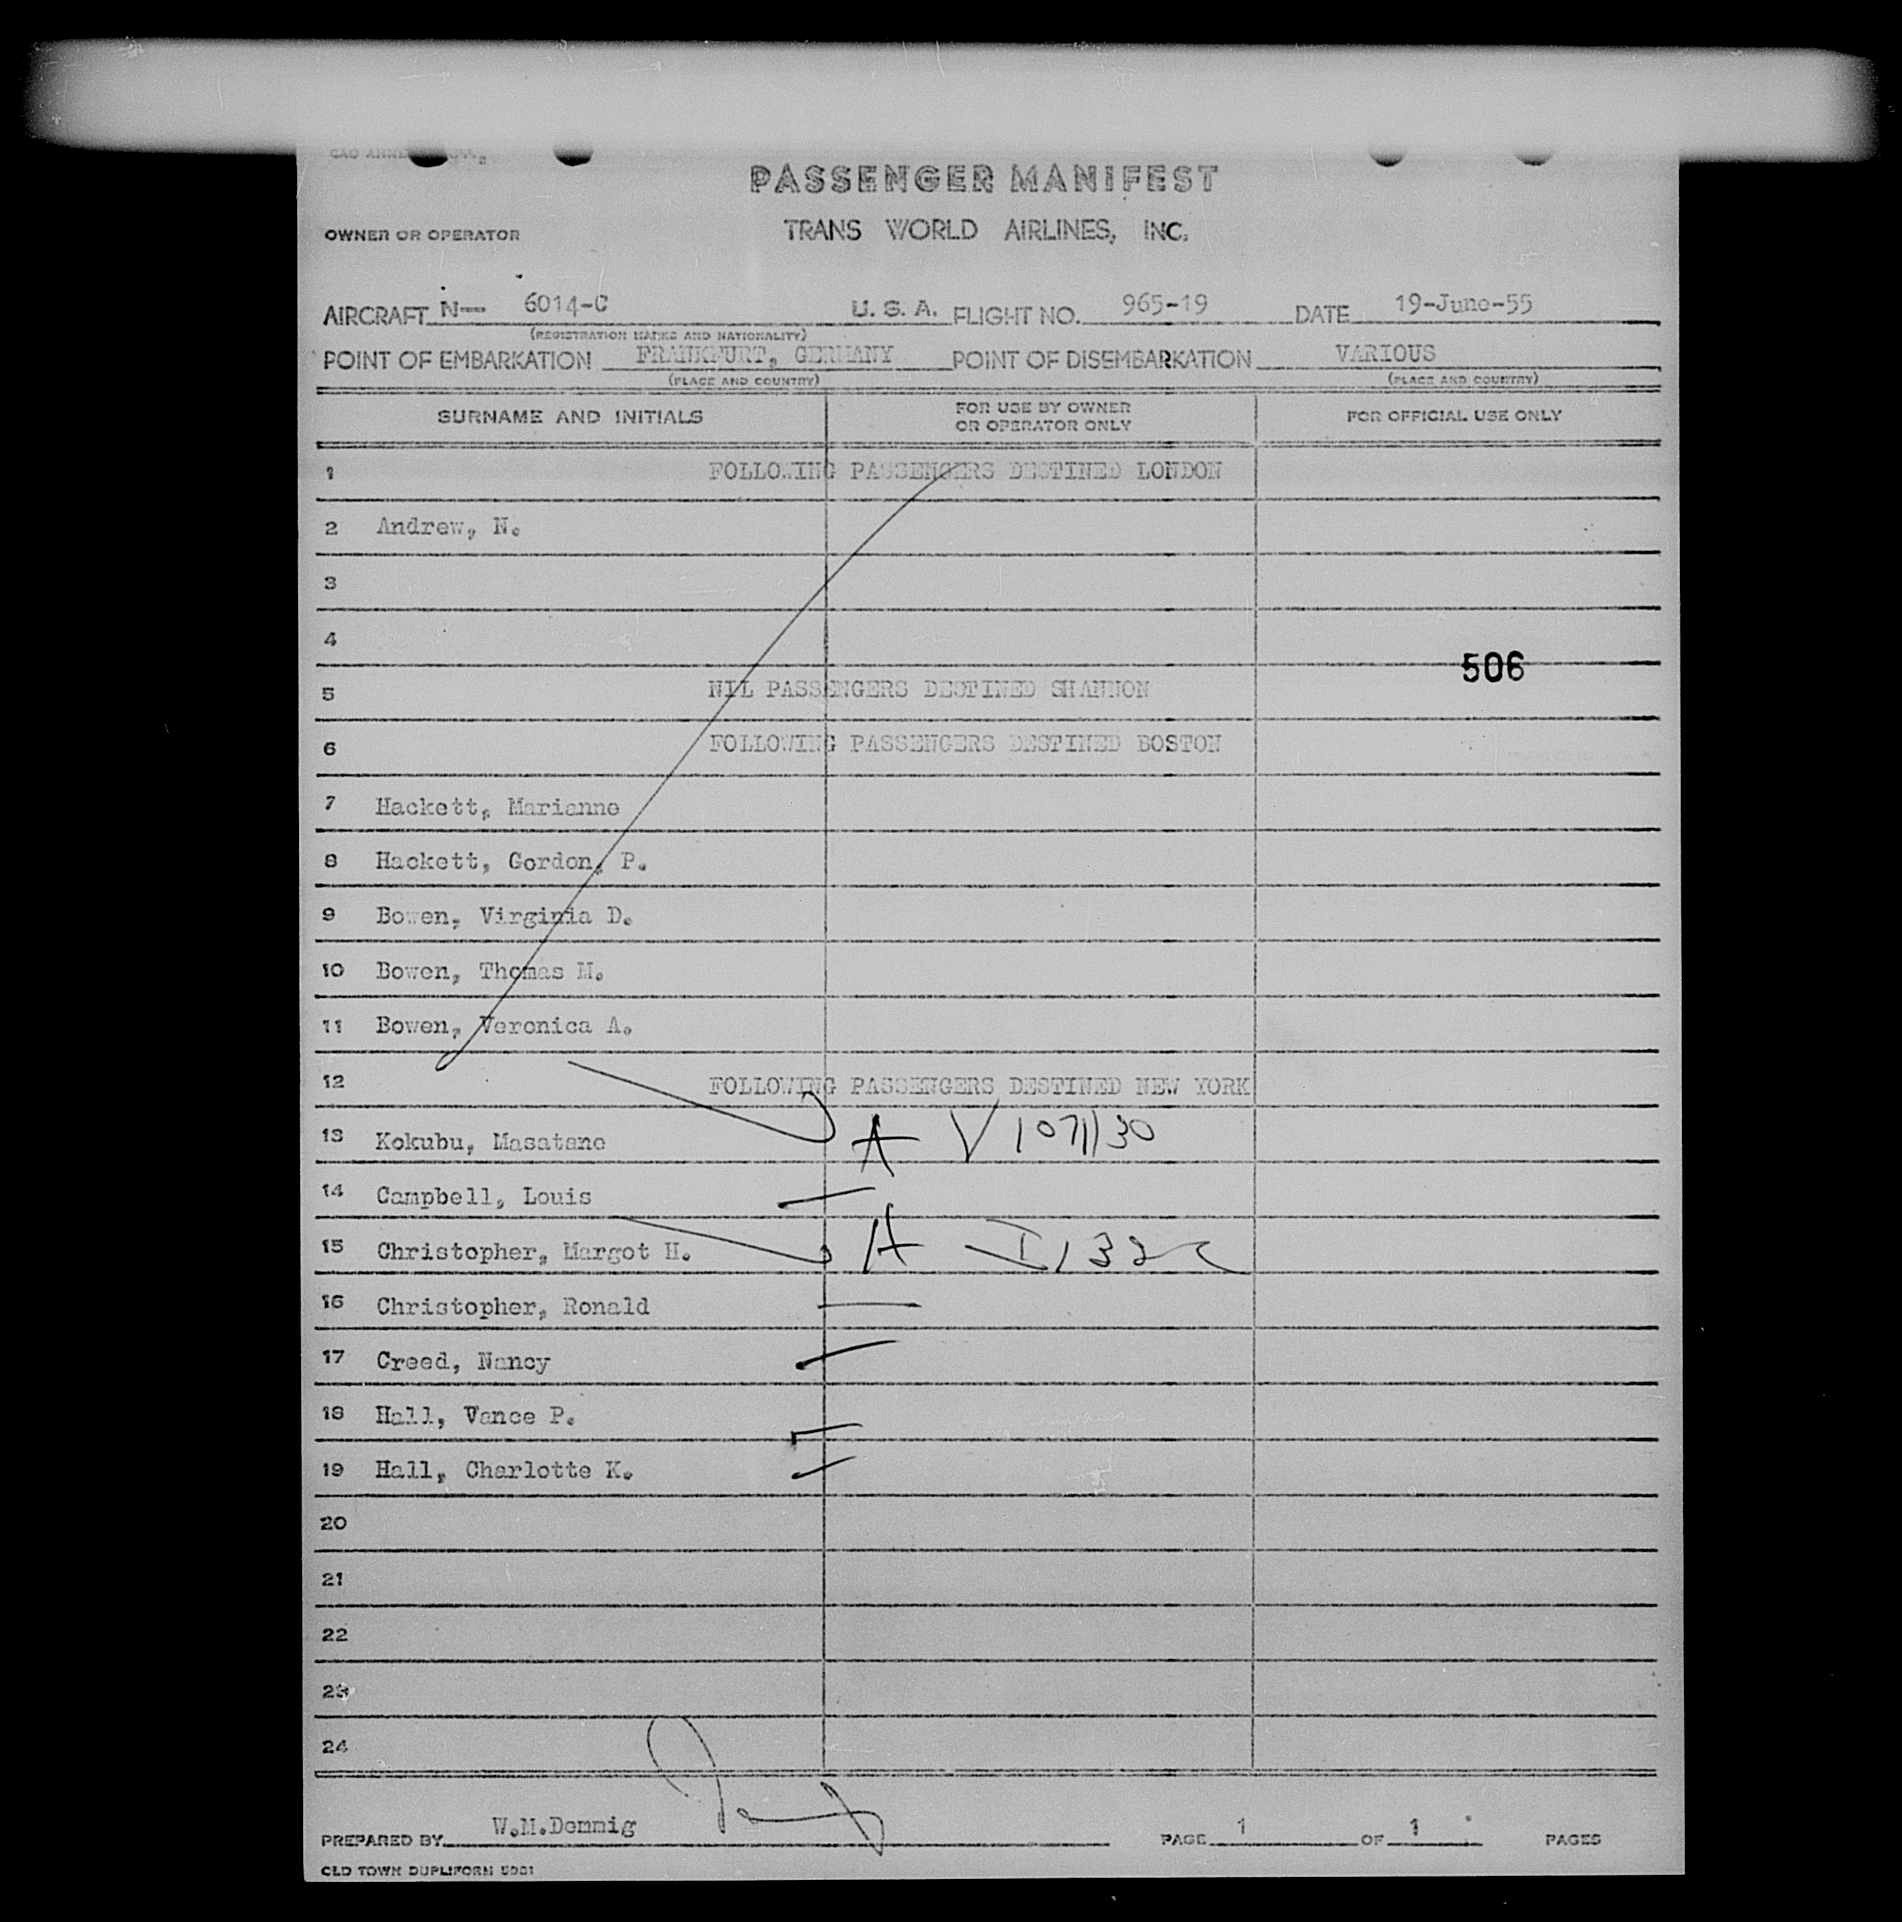 PASSENGER MANIFEST
OWNER OR OPERATOR TRANS WORLD AIRLINES, INC.
AIRCRAFT N— 6014-C U. S. A. FLIGHT NO. 965-19 DATE 19-June-55
(REGISTRATION MARKS AND NATIONALITY)
POINT OF EMBARKATION FRANKFURT, GERMANY POINT OF DISEMBARKATION VARIOUS
(PLACE AND COUNTRY) (PLACE AND COUNTRY)
SURNAME AND INITIALS FOR USE BY OWNER OR OPERATOR ONLY FOR OFFICIAL USE ONLY
1 FOLLOWING PASSENGERS DESTINED LONDON
2 Andrew, N.
3
4
506
5 NIL PASSENGERS DESTINED SHANNON
6 FOLLOWING PASSENGERS DESTINED BOSTON
7 Hackett, Marianne
8 Hackett, Gordon, P.
9 Bowen, Virginia D.
10 Bowen, Thomas M.
11 Bowen, Veronica A.
12 FOLLOWING PASSENGERS DESTINED NEW YORK
13 Kokubu, Masatane A V 1071130
14 Campbell, Louis
15 Christopher, Margot H. A
16 Christopher, Ronald
17 Creed, Nancy
18 Hall, Vance P.
19 Hall, Charlotte K.
20
21
22
23
24
PREPARED BY W.M.Demmig PAGE 1 OF 1 PAGES
OLD TOWN DUPLIFORM 5001